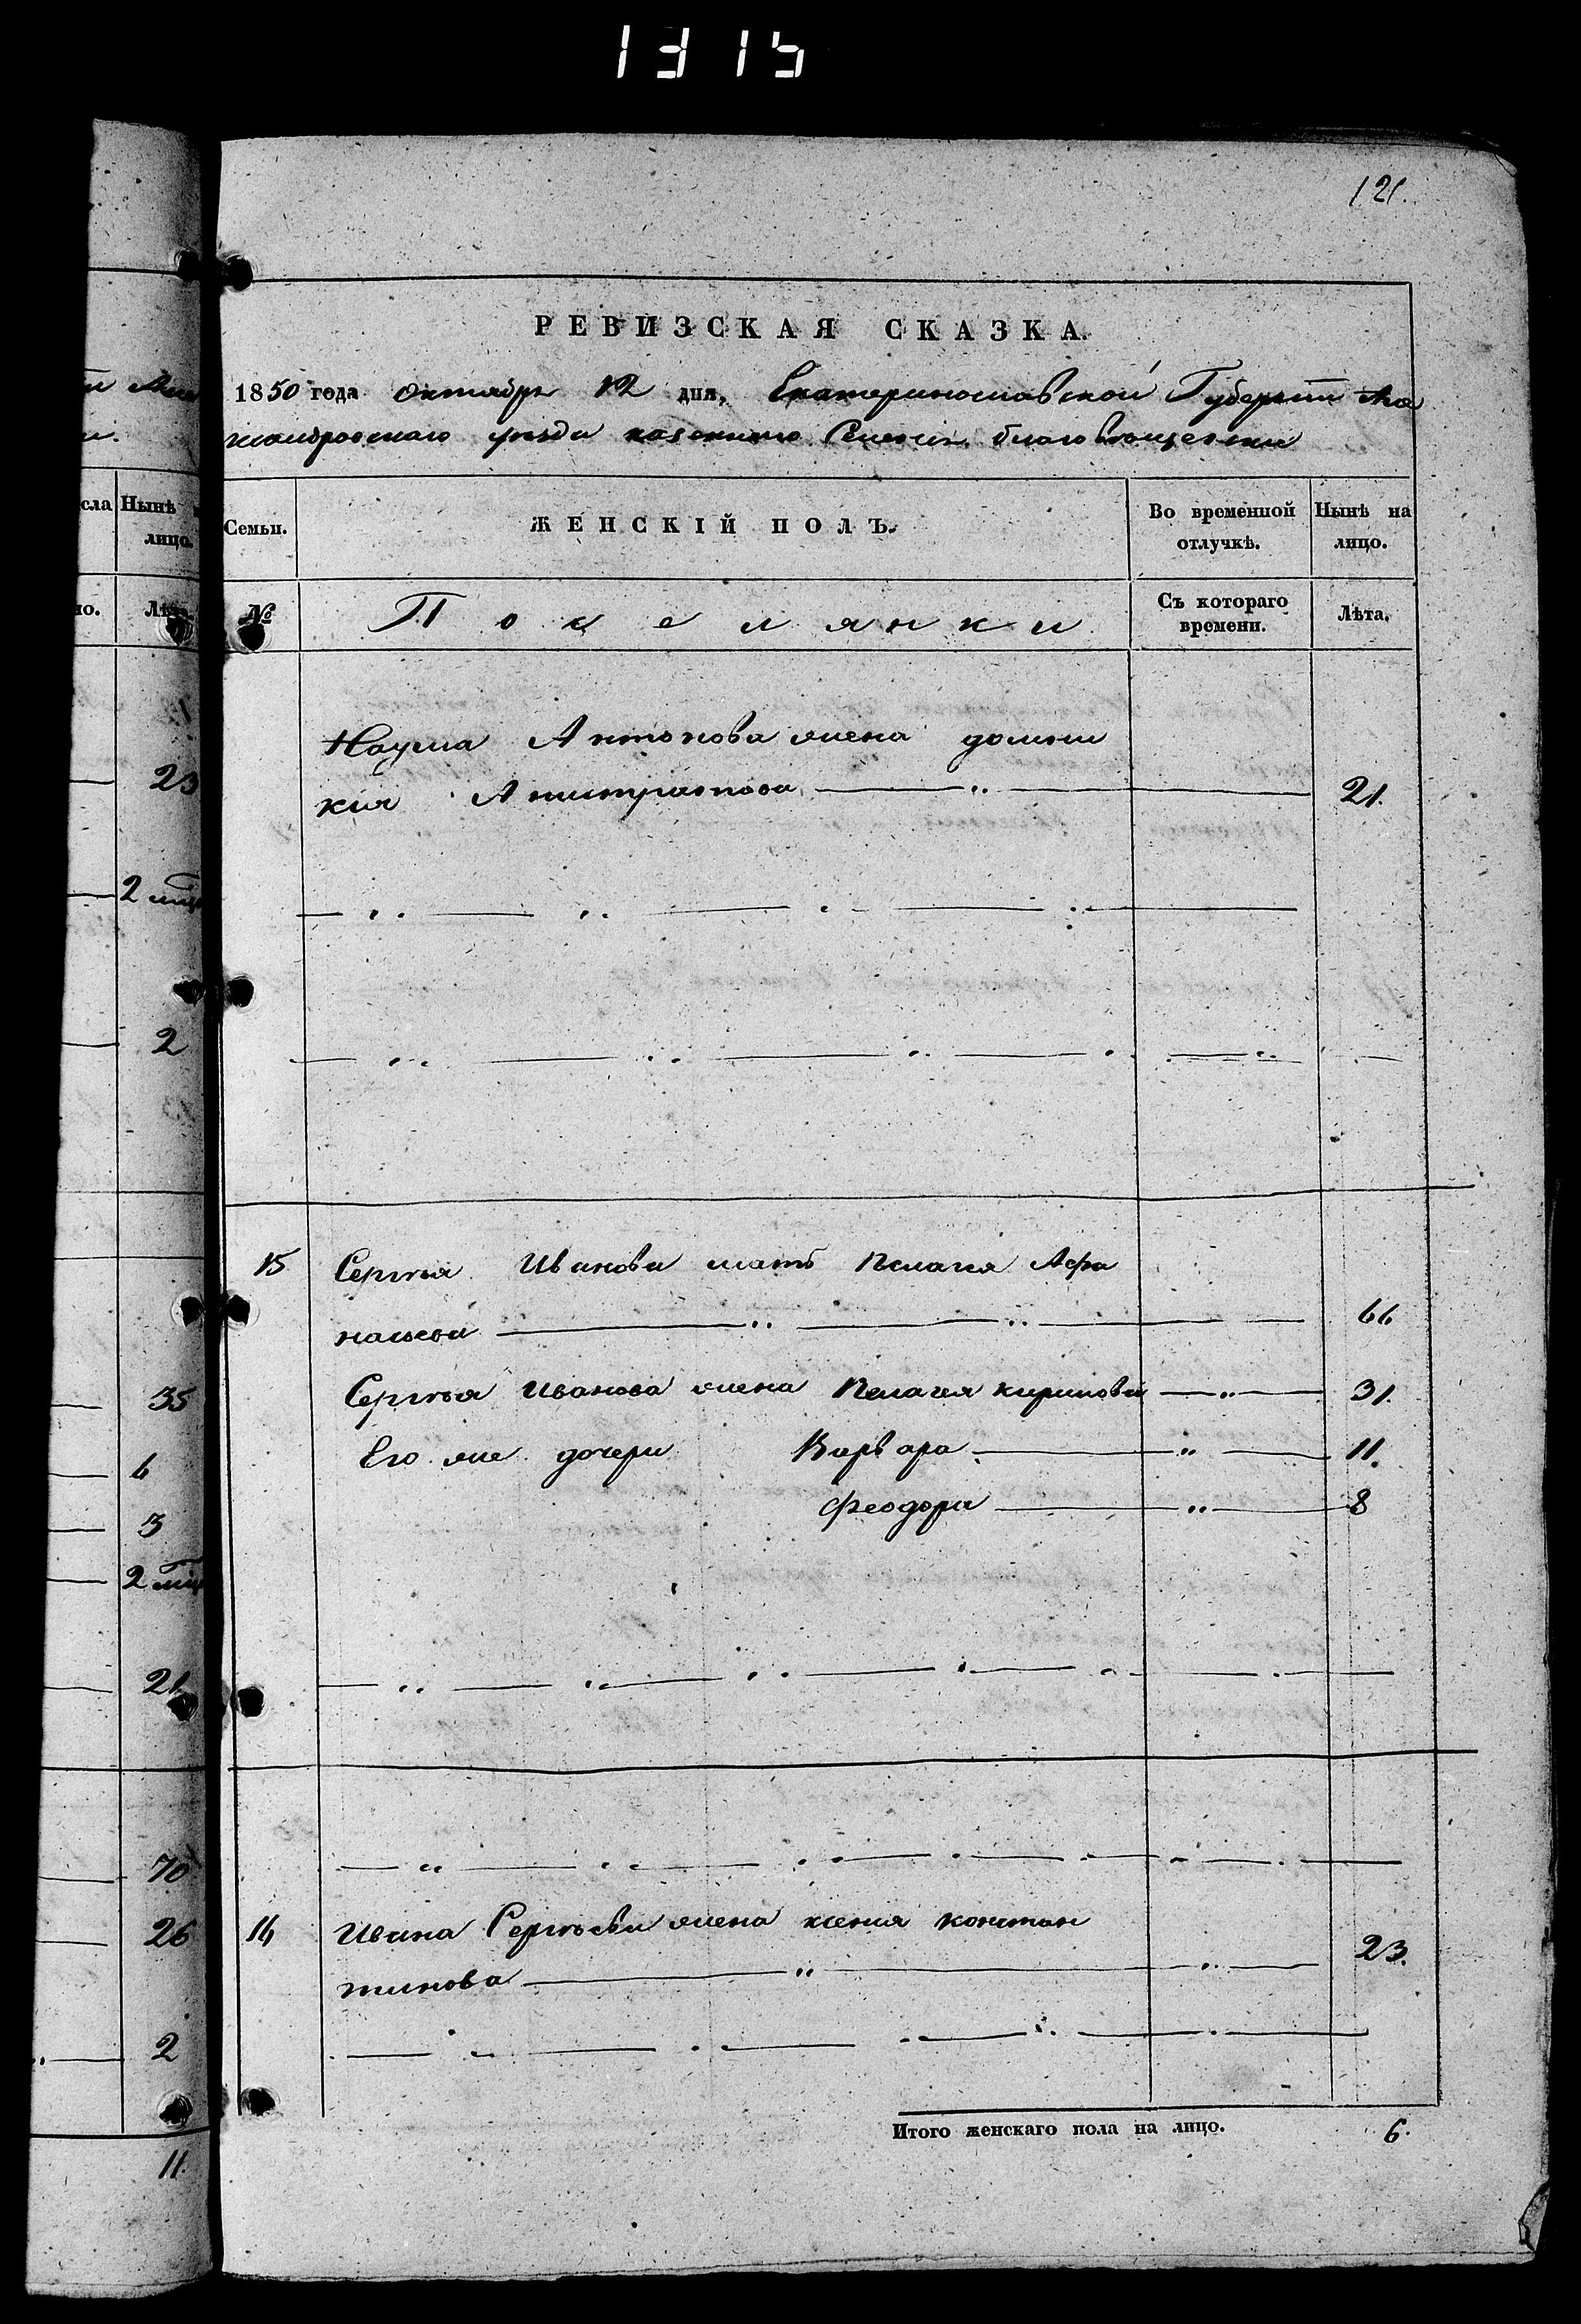 1315
121.
РЕВИЗСКАЯ СКАЗКА.
1850 года Октября 12 дня, Екатеринославской Губерніи Але
ксандровскаго уѣзда казеннаго Селенія благовѣщенки
Семьи.
ЖЕНСКІЙ ПОЛЪ.
Во временной отлучкѣ.
Нынѣ на лицо.
№
Поселянки
Съ котораго времени.
Лѣта.
Наума Антонова жена домни
кія 21.
15 Сергѣя Иванова мать Пелагея Афа
насьева 66
Сергѣя Иванова жена Пелагея кирилова 31.
Его же дочери Варвара 11.
Феодора 8
16 Ивана Сергѣева жена ксенія констан
тинова 23.
Итого женскаго пола на лицо. 6.
сла
Нынѣ
лицо.
но.
Лѣта.
23
2
35
6
3
2
21
70
26
2
11.